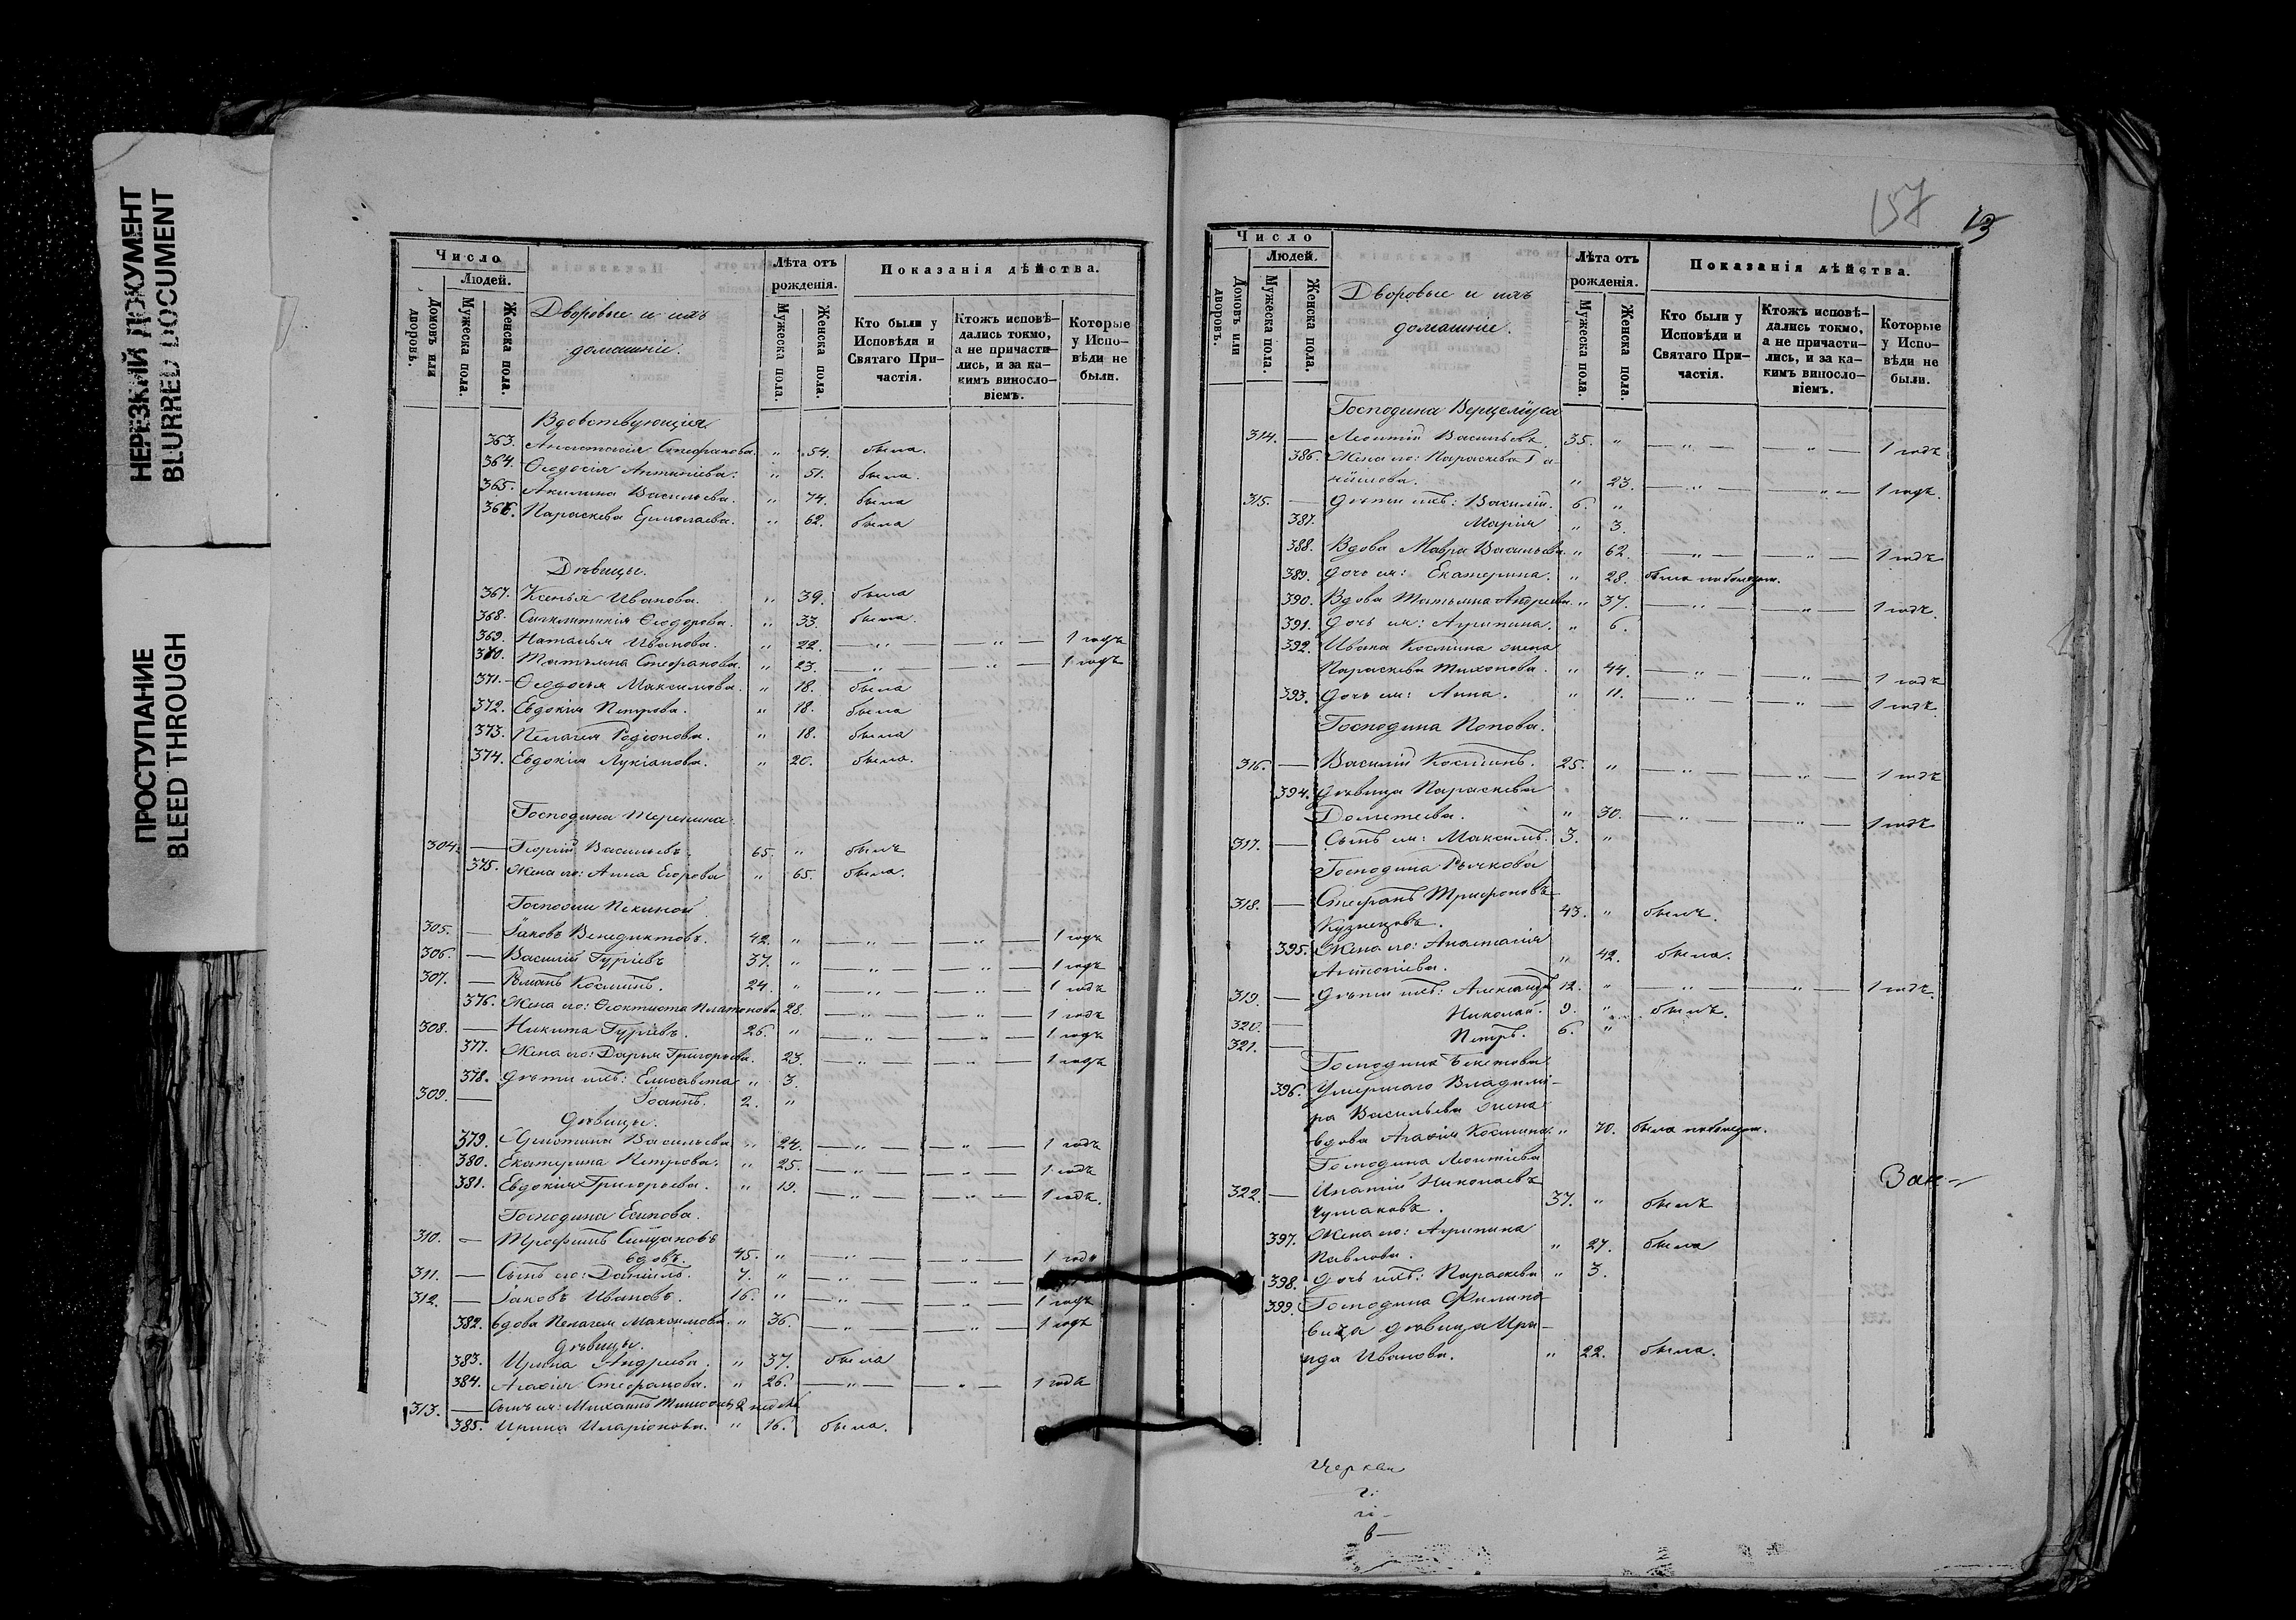 НЕРЕЗКИЙ ДОКУМЕНТ
BLURRED DOCUMENT
ПРОСТУПАНИЕ
BLEED THROUGH
Число
Людей.
Домовъ или дворовъ.
Мужеска пола.
Женска пола.
Дворовые и ихъ
домашніе.
Лѣта отъ рожденія.
Мужеска пола.
Женска пола.
Показанія дѣйства.
Кто были у Исповѣди и Святаго Причастія.
Ктожъ исповѣдались токмо, а не причастились, и за какимъ винословіемъ.
Которые у Исповѣди не были.
Вдовствующія
363. Анастасія Стефанова. " 54. была.
364. Ѳеодосія Антипіева. " 51. была.
365. Акилина Васильева. " 74. была
366. Параскева Ермолаева. " 62. была
Дѣвицы.
367. Ксенья Иванова. " 39. была
368. Синклитикія Ѳеодорова. " 33. была.
369. Наталья Иванова. " 22. — " — — " — 1 годъ
370. Татьяна Стефанова. " 23. — " — — " — 1 годъ
371. Ѳеодосья Максимова. " 18. была
372. Евдокія Петрова. " 18. была
373. Пелагея Родіонова. " 18. была
374. Евдокія Лукіанова. " 20. была.
Господина
304. — Георгій Васильевъ. 65. " былъ
375. Жена его: Анна Егорова " 65. была.
Госпожи
305. — Іаковъ Венедиктовъ. 42. " — " — — " — 1 годъ
306. — Василій Гуріевъ 37. " — " — — " — 1 годъ
307. — Романъ Косминъ. 24. " — " — — " — 1 годъ
376. Жена его: Ѳеоктиста Платонова 28. — " — — " — 1 годъ
308. — Никита Гуріевъ. 26. " — " — — " — 1 годъ
377. Жена его: Дарья Григорьева. 23. — " — — " — 1 годъ
378. Дѣти ихъ: Елисавета " 3.
309. — Іоаннъ. 2. "
Дѣвицы.
379. Васильева " 24. — " — — " — 1 годъ
380. Екатерина Петрова. " 25. — " — — " — 1 годъ
381. Евдокія Григорьева. " 19. — " — — " — 1 годъ
Господина Есипова.
310. — Трофимъ
вдовъ. 45. " — " — — " — 1 годъ
311. — Сынъ его: Даніилъ. 7. " — " — — " —
312. — Іаковъ Ивановъ. 16. " — " — — " — 1 годъ
382. вдова Пелагея Максимова. " 36. — " — — " — 1 годъ
Дѣвицы.
383. Ирина Андреева. " 37. была
384. Агаѳія Стефанова. " 26. — " — — " — 1 годъ
313. — Сынъ ея: Михаилъ 2 недѣли
385. Ирина Иларіонова. " 16. была.
157
13
Число
Людей.
Домовъ или дворовъ.
Мужеска пола.
Женска пола.
Дворовые и ихъ
домашніе.
Лѣта отъ рожденія.
Мужеска пола.
Женска пола.
Показанія дѣйства.
Кто были у Исповѣди и Святаго Причастія.
Ктожъ исповѣдались токмо, а не причастились, и за какимъ винословіемъ.
Которые у Исповѣди не были.
Господина
314. — Леонтій Васильевъ. 35. " — " — — " — 1 годъ
386. Жена его: Параскева
" 23. — " — — " — 1 годъ.
315. — Дѣти ихъ: Василій. 6. "
387. Марія " 3.
388. Вдова Мавра Васильева. " 62. — " — — " — 1 годъ
389. Дочь ея: Екатерина. " 28. была
390. Вдова Татьяна Андреева. " 37. — " — — " — 1 годъ.
391. Дочь ея: Агрипина. " 6.
392. Ивана Космина жена
Параскева Тихонова. " 44. — " — — " — 1 годъ
393. Дочь ея: Анна. " 11. — " — — " — 1 годъ.
Господина Попова.
316. — Василій Косминъ. 25. " — " — — " — 1 годъ
394. Дѣвица Параскева
Дометіева. " 30. — " — — " — 1 годъ
317. — Сынъ ея: Максимъ. 3. "
Господина Рычкова
318. — Стефанъ Трифоновъ
Кузнецовъ. 43. " былъ.
395. Жена его: Анастасія
Антоніева. " 42. была.
319. — Дѣти ихъ: Александръ 12. " — " — — " — 1 годъ.
320. — Николай. 9. " былъ.
321. — Петръ. 6. "
Господина Бекетова
396. Умершаго Владимі-
ра Васильева жена
вдова Агаѳія Космина. " 70. была
Господина Леонтіева
322. — Ипатій Николаевъ
Чумаковъ. 37. " былъ
397. Жена его: Агрипина
Павлова. " 27. была
398. Дочь ихъ: Параскева " 3.
399. Господина Филипо-
вича дѣвица Ира-
ида Иванова. " 22. была.
Зак-
Церкви